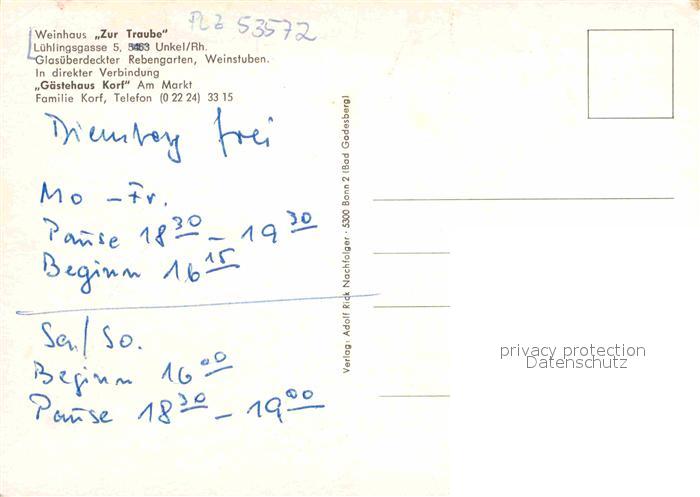 PLZ 53572
Weinhaus „Zur Traube"
Lühlingsgasse 5, 5463 Unkel/Rh.
Glasüberdeckter Rebengarten, Weinstuben.
In direkter Verbindung
„Gästehaus Korf" Am Markt
Familie Korf, Telefon (0 22 24) 33 15
Dienstag frei
Mo – Fr.
Pause 18 30 – 19 30
Beginn 16 15
Sa/So.
Beginn 16 00
Pause 18 30 – 19 00
Verlag: Adolf Rick Nachfolger · 5300 Bonn 2 (Bad Godesberg)
privacy protection
Datenschutz